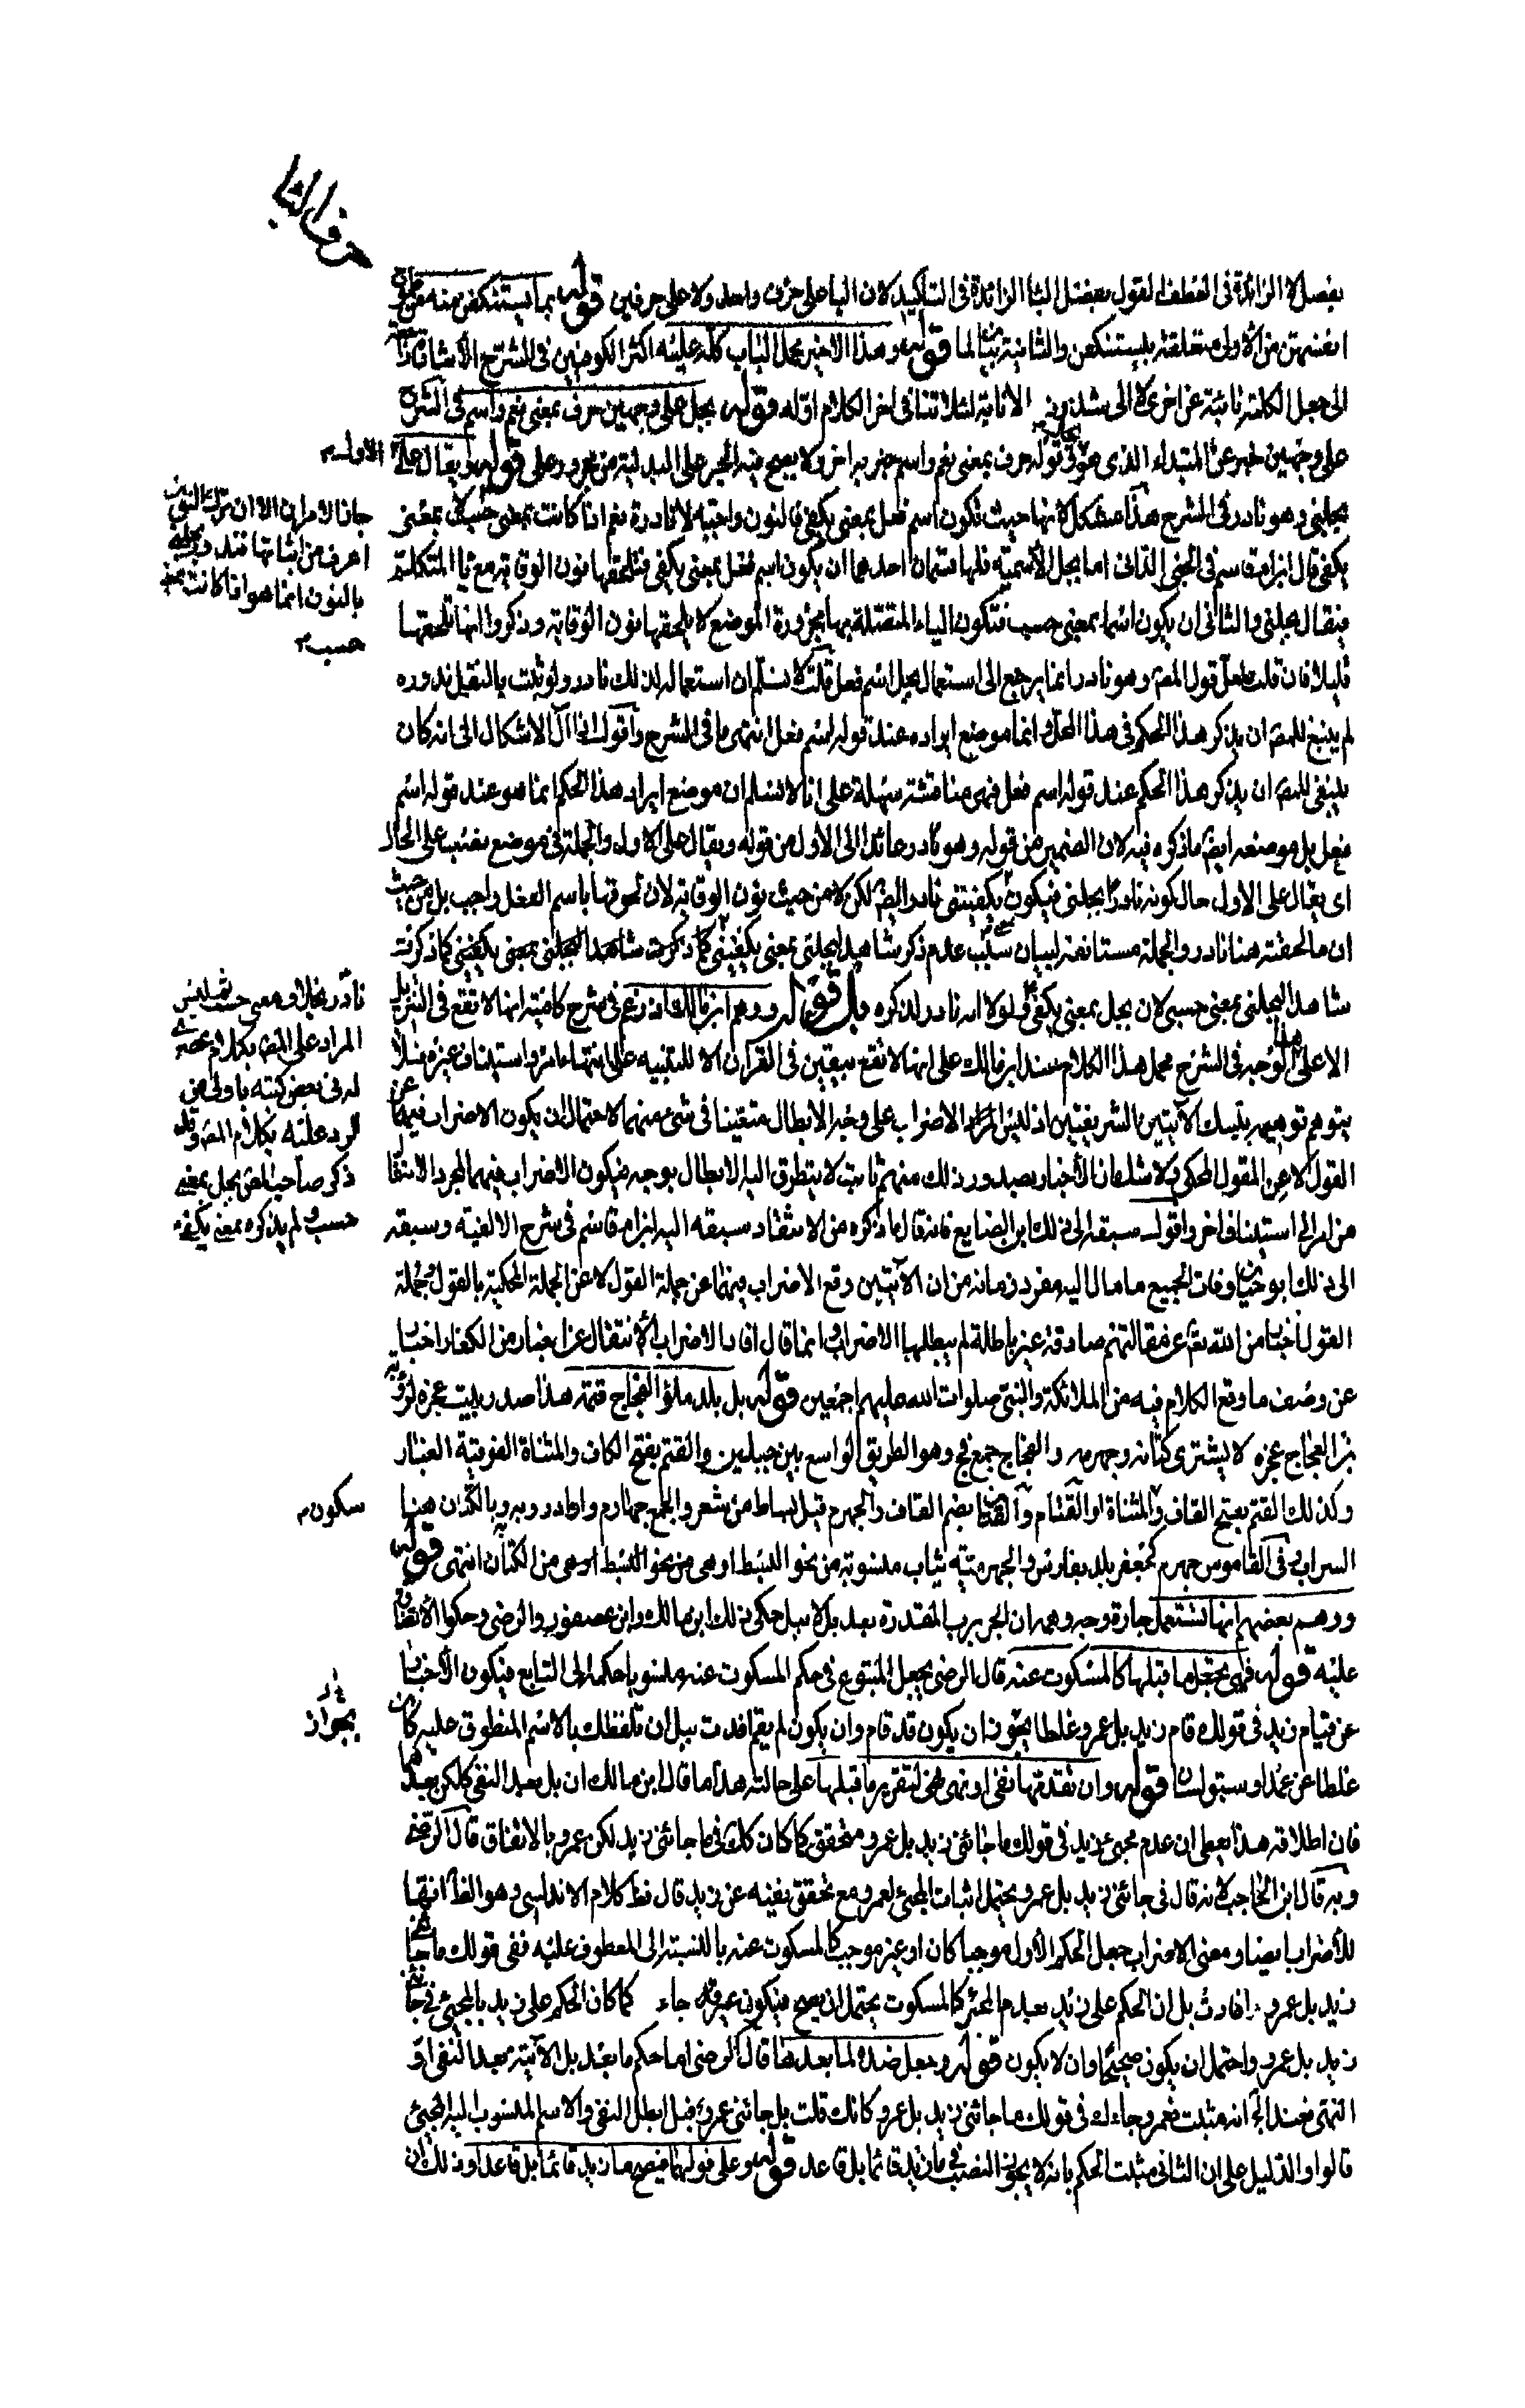 حرف البا
يفصل لا الزائدة في العطف لقول بفضل البا الزائدة في التاكيد لان البا على حرف واحد ولا على حرفين قوله بما يستنكفن منه
من الاولى متعلقة بيستنكفن والثانية لما قوله وهذا الاخير محمل الباب كله عليه اكثر الكوفيين في الشرح الاشارة
الى جعل الكلمة نائبة عن اخرى لا الى شذوذ الانابة لئلا تنافى اخر الكلام اوله قوله بجل على وجهين حرف بمعنى نعم واسم في الشرح
على وجهين خبر عن المبتداء الذي هو بجل في قوله حرف بمعنى نعم واسم خبر اخر ولا يصح فيه الجر على البدلية من مجرور على قوله ويقال على الاول
بجلني وهو نادر في الشرح هذا مشكل لانها حيث تكون اسم فعل بمعنى يكفي فالنون واجبة لا نادرة نعم اذا كانت بمعنى حسب لا بمعنى
يكفي قال ابن ام قاسم في الجنى الداني اما بجل الاسمية فلها قسمان احدهما ان يكون اسم فعل بمعنى يكفي فتلحقها نون الوقاية مع يا المتكلم
فيقال بجلني والثاني ان يكون اسما بمعنى حسب فتكون الياء المتصلة بها مجرورة الموضع لا يلحقها نون الوقاية وذكروا انها تلحقها
قليلا فان قلت لعل قول المص وهو نادر انما يرجع الى استعمال بجل اسم فعل قلت لا نسلم ان استعماله لذلك نادر ولو ثبت بالنقل ندوره
لم ينبغ للمص ان يذكر هذا الحكم في هذا المحل وانما موضع ايراده عند قوله اسم فعل انتهى ما في الشرح واقول اذا آل الاشكال الى انه كان
ينبغي للمص ان يذكر هذا الحكم عند قوله اسم فعل فهي مناقشة سهلة على انا لا نسلم ان موضع ايراد هذا الحكم انما هو عند قوله اسم
فعل بل موضعه ايض ما ذكره فيه لان الضمير من قوله وهو نادر عائد الى الاول من قوله ويقال على الاول والجملة في موضع نصب على الحال
اى يقال على الاول حال كونه نادرا بجلني فيكون يكفينني نادرا ايض لكن لا من حيث نون الوقاية لان لحوقها باسم الفعل واجب بل من حيث
ان ما لحقته هنا نادر والجملة مستانفة لبيان سبب عدم ذكر شاهد لبجلني بمعنى يكفيني كما ذكرت شاهدا لبجلي بمعنى يكفيني كما ذكرت
شاهدا لبجلي بمعنى حسبي لان بجل بمعنى يكفي ولولا انه نادر لذكره بل قوله ووهم ابن مالك اذ زعم في شرح كافيته انها لا تقع في التنزيل
الا على هذا الوجه في الشرح محمل هذا الكلام عند ابن مالك على انها لا تقع بيقين في القرآن الا للتنبيه على انتهاء امر واستيناف غيره فلا
يتوهم توهيمه بتلك الآيتين الشريفتين اذ ليس المراد الاضراب على وجه الابطال متعينا في شئ منهما لاحتمال ان يكون الاضراب فيهما عن
القول لا عن المقول المحكي ولا شك ان الأخبار بصدور ذلك منهم ثابت لا يتطرق اليه الابطال بوجه فيكون الاضراب فيهما لمجرد الانتقال
من امر الى استيناف اخر واقول سبقه الى ذلك ابن الصايغ فانه قال ما ذكره من الانتقاد سبقه اليه ابن ام قاسم في شرح الالفية وسبقه
الى ذلك ابو حيان وفات الجميع ما مال اليه مفرد زمانه من ان الآيتين وقع الاضراب فيهما عن جملة القول لا عن الجملة المحكية بالقول وجملة
القول اخبار من الله تع عن مقالتهم صادقة غير باطلة لم يبطلها الاضراب وانما قال افاد الاضراب الانتقال عن اخبار من الكفار اخبار
عن وصف ما وقع الكلام فيه من الملائكة والنبي صلوات الله عليهم اجمعين قوله بل بلد ملؤ الفجاج قتمه هذا صدر بيت عجزه لرؤبة
بن العجاج عجزه لا يشترى كتانه وجهرمه والفجاج جمع فج وهو الطريق الواسع بين جبلين والقتم بفتح الكاف والمثناة الفوقية الغبار
وكذلك القتم بفتح القاف والمثناة او القتام بضم القاف والجهرم قيل بساط من شعر والجمع جهارم
السراب في القاموس جهرم كجعفر بلد بفارس والجهرمية ثياب منسوبة من نحو البسط او هي من الكتان انتهى قوله
ووهم بعضهم انها تستعمل جارة وجه وهمه ان الجر برب المقدرة بعد بل لا ببل حكى ذلك ابن مالك وابن عصفور والرضي وحكوا الاتفاق
عليه قوله فهي تجعل ما قبلها كالمسكوت عنه قال الرضي يجعل المتبوع في حكم المسكوت عنه منسوبا حكمه الى التابع فيكون الأخبار
عن قيام زيد في قولك قام زيد بل عمرو غلطا يجوز ان يكون قد قام وان يكون لم يقم افدت ببل ان تلفظك بالاسم المنطوق عليه كان
غلطا عن عمد او سبق لسان قوله وان تقدمها نفي او نهي فهي لتقرير ما قبلها على حالته هذا ما قال ابن مالك ان بل بعد النفي كلكن بعدها
فان اطلاقه هذا يعطى ان عدم مجئ زيد في قولك ما جائني زيد بل عمرو متحقق كما كان كك في ما جائني زيد لكن عمرو بالاتفاق قال الرضى
وبه قال ابن الحاجب لانه قال في جائني زيد بل عمرو يحتمل اثبات المجئ لعمرو مع تحقق نفيه عن زيد قال نظ كلام الاندلسي وهو الظ انها
للأضراب ايضا ومعنى الاضراب جعل الحكم الأول موجبا كان او غير موجب كالمسكوت عنه بالنسبة الى المعطوف عليه ففي قولك ما جائني
زيد بل عمرو افادت بل ان الحكم على زيد بعدم المجئ كالمسكوت يحتمل ان يصح فيكون غير جاء كما كان الحكم على زيد بالمجئ في جائني
زيد بل عمرو واحتمل ان يكون صحيحا وان لا يكون قوله وجعل ضده لما بعدها قال الرضي اما حكم ما بعد بل الآتية بعد النفي او
النهي فعند الج انه مثبت فعمرو جاءك في قولك ما جائني زيد بل عمرو كانك قلت بل جائني عمرو فبل ابطل النفي والاسم المنسوب اليه المجئ
قالوا والدليل على ان الثاني مثبت الحكم بانه لا يجوز النصب في ما زيد قائما بل قاعد قوله وعلى قولهما فيصح ما زيد قائما بل قاعدا وذلك ان
جاز الامران الا ان ترك النون
اعرف من اثباتها فندور بجلني
بالنون انما هو اذا كانت بمعنى
حسب
نادر بخلاف معنى حسب ثم ليس
المراد على المص بكلام
له في بعض كتبه باولى من
الرد عليه بكلام المص وقد
ذكر صاحب المص بجل بمعنى
حسب ولم يذكره بمعنى يكفي
سكون
بجواز